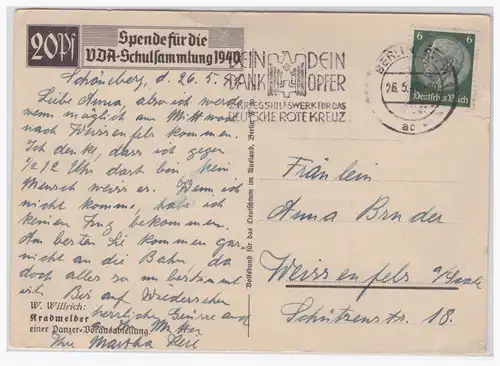 20 Pf
Spende für die
VDA-Schulsammlung 1940
DEIN DEIN
DANK OPFER
KRIEGSHILFSWERK FÜR DAS
DEUTSCHE ROTE KREUZ
BERLIN
26.5.
ac
6 6
Deutsches Reich
Schöneberg, d. 26.5.
Liebe Anna, also ich werde
wenn möglich am Mittwoch
nach Weissenfels kommen.
Ich denke, dass ich gegen
1/2 12 Uhr dort bin, kein
Mensch weiss es. Wenn ich
nicht komme, habe ich
keinen Zug bekommen.
Am besten Sie kommen gar
nicht an die Bahn, da
doch alles so unbestimmt
ist. Bis auf Wiedersehen
herzlichen Grüsse auch
Mutter
Ihre Martha
W. Willrich:
Kradmelder
einer Panzer-Vorausabteilung
Volksbund für das Deutschtum im Ausland, Berlin
Fräulein
Anna Bruder
Weissenfels a/Saale
Schützenstr. 18.